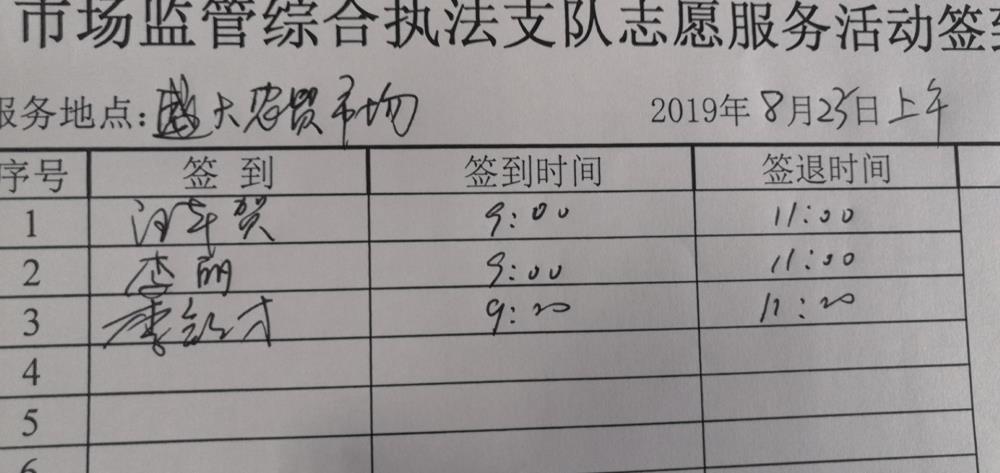 市场监管综合执法支队志愿服务活动签到
服务地点:盛大农贸市场 2019年8月25日上午
序号 签到 签到时间 签退时间
1 贺 9:00 11:00
2 李丽 9:00 11:00
3 李 才 9:20 11:20
4
5
6